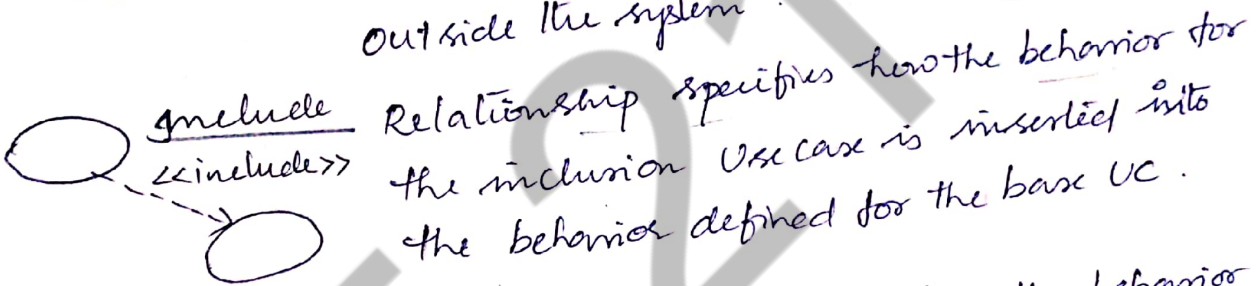 outside the system.
Include Relationship specifies how the behavior for
<<include>> the inclusion Use case is inserted into
the behavior defined for the base UC.
behavior